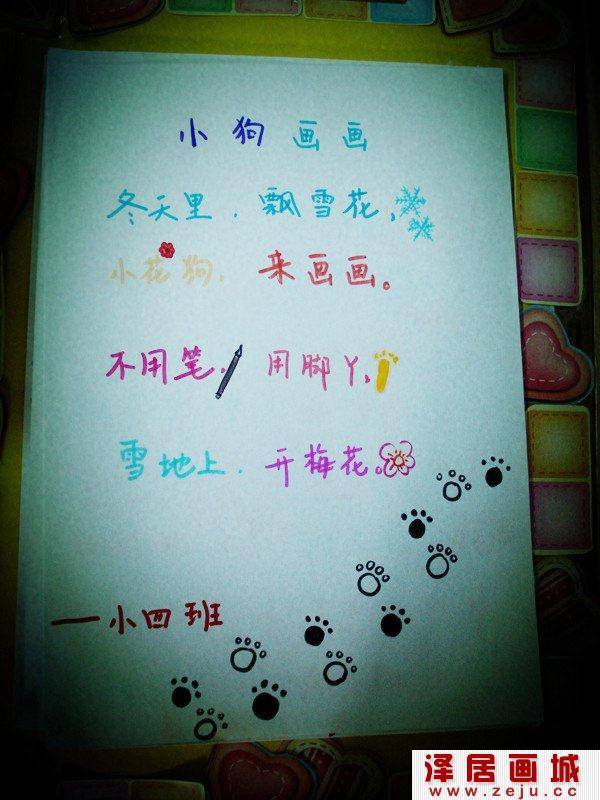 小狗画画
冬天里，飘雪花，
小花狗，来画画。
不用笔，用脚丫，
雪地上，开梅花。
一小四班
泽居画城
www.zeju.cc